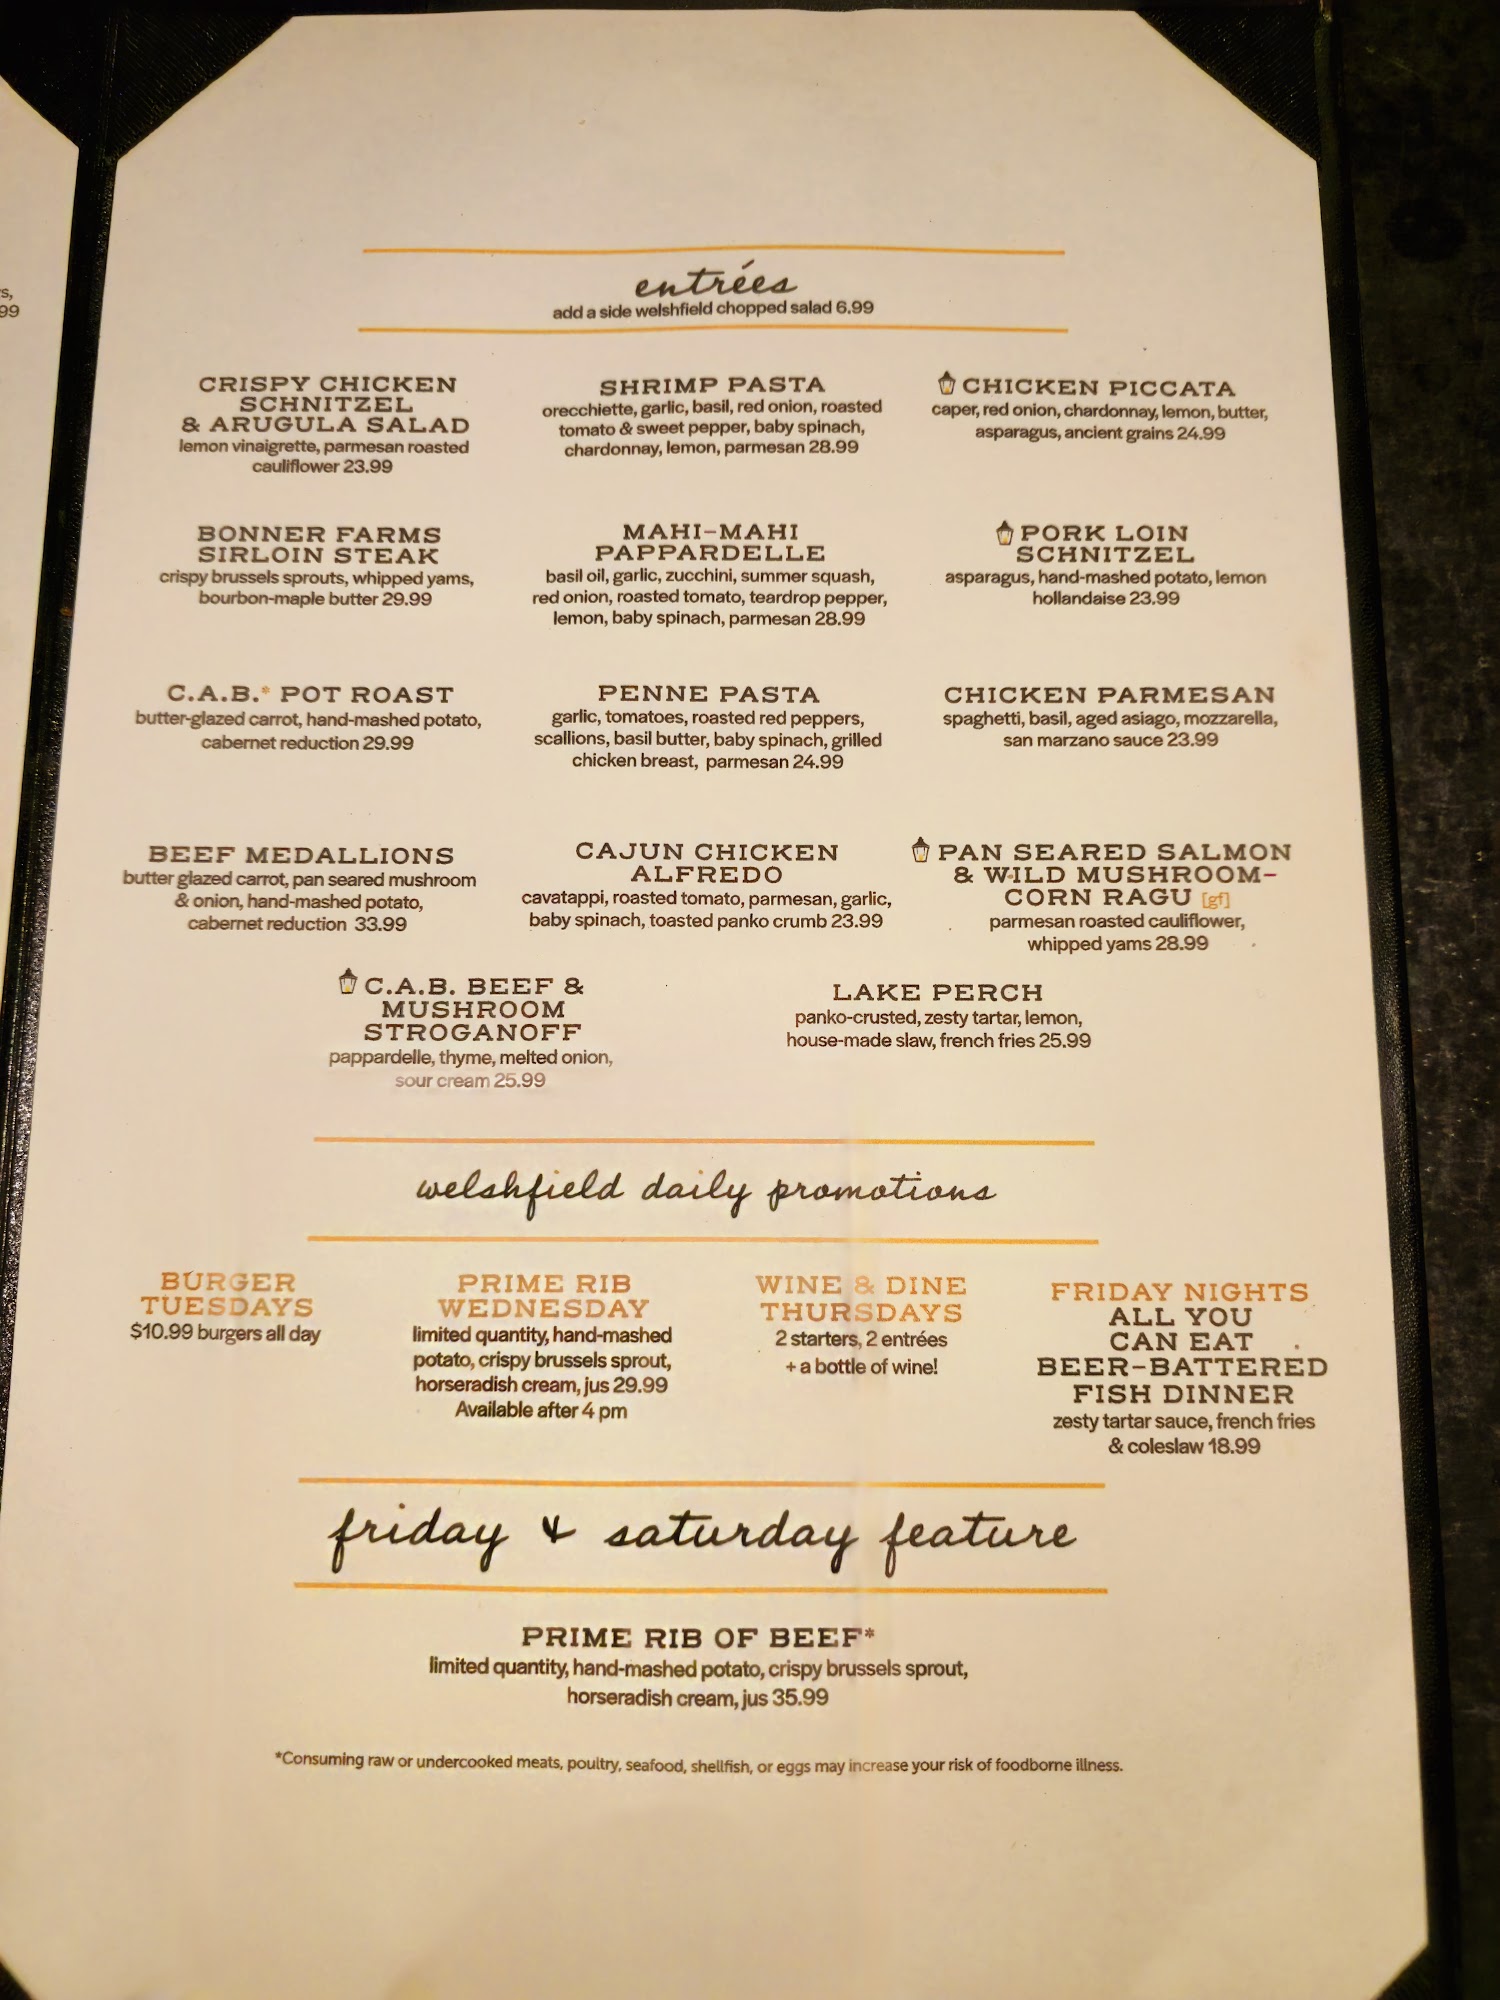 s,
99
entrées
add a side welshfield chopped salad 6.99
CRISPY CHICKEN
SCHNITZEL
& ARUGULA SALAD
lemon vinaigrette, parmesan roasted
cauliflower 23.99
SHRIMP PASTA
orecchiette, garlic, basil, red onion, roasted
tomato & sweet pepper, baby spinach,
chardonnay, lemon, parmesan 28.99
CHICKEN PICCATA
caper, red onion, chardonnay, lemon, butter,
asparagus, ancient grains 24.99
BONNER FARMS
SIRLOIN STEAK
crispy brussels sprouts, whipped yams,
bourbon-maple butter 29.99
MAHI-MAHI
PAPPARDELLE
basil oil, garlic, zucchini, summer squash,
red onion, roasted tomato, teardrop pepper,
lemon, baby spinach, parmesan 28.99
PORK LOIN
SCHNITZEL
asparagus, hand-mashed potato, lemon
hollandaise 23.99
C.A.B.* POT ROAST
butter-glazed carrot, hand-mashed potato,
cabernet reduction 29.99
PENNE PASTA
garlic, tomatoes, roasted red peppers,
scallions, basil butter, baby spinach, grilled
chicken breast, parmesan 24.99
CHICKEN PARMESAN
spaghetti, basil, aged asiago, mozzarella,
san marzano sauce 23.99
BEEF MEDALLIONS
butter glazed carrot, pan seared mushroom
& onion, hand-mashed potato,
cabernet reduction 33.99
CAJUN CHICKEN
ALFREDO
cavatappi, roasted tomato, parmesan, garlic,
baby spinach, toasted panko crumb 23.99
PAN SEARED SALMON
& WILD MUSHROOM-
CORN RAGU [gf]
parmesan roasted cauliflower,
whipped yams 28.99
C.A.B. BEEF &
MUSHROOM
STROGANOFF
pappardelle, thyme, melted onion,
sour cream 25.99
LAKE PERCH
panko-crusted, zesty tartar, lemon,
house-made slaw, french fries 25.99
welshfield daily promotions
BURGER
TUESDAYS
$10.99 burgers all day
PRIME RIB
WEDNESDAY
limited quantity, hand-mashed
potato, crispy brussels sprout,
horseradish cream, jus 29.99
Available after 4 pm
WINE & DINE
THURSDAYS
2 starters, 2 entrées
+ a bottle of wine!
FRIDAY NIGHTS
ALL YOU
CAN EAT
BEER-BATTERED
FISH DINNER
zesty tartar sauce, french fries
& coleslaw 18.99
friday & saturday feature
PRIME RIB OF BEEF*
limited quantity, hand-mashed potato, crispy brussels sprout,
horseradish cream, jus 35.99
*Consuming raw or undercooked meats, poultry, seafood, shellfish, or eggs may increase your risk of foodborne illness.